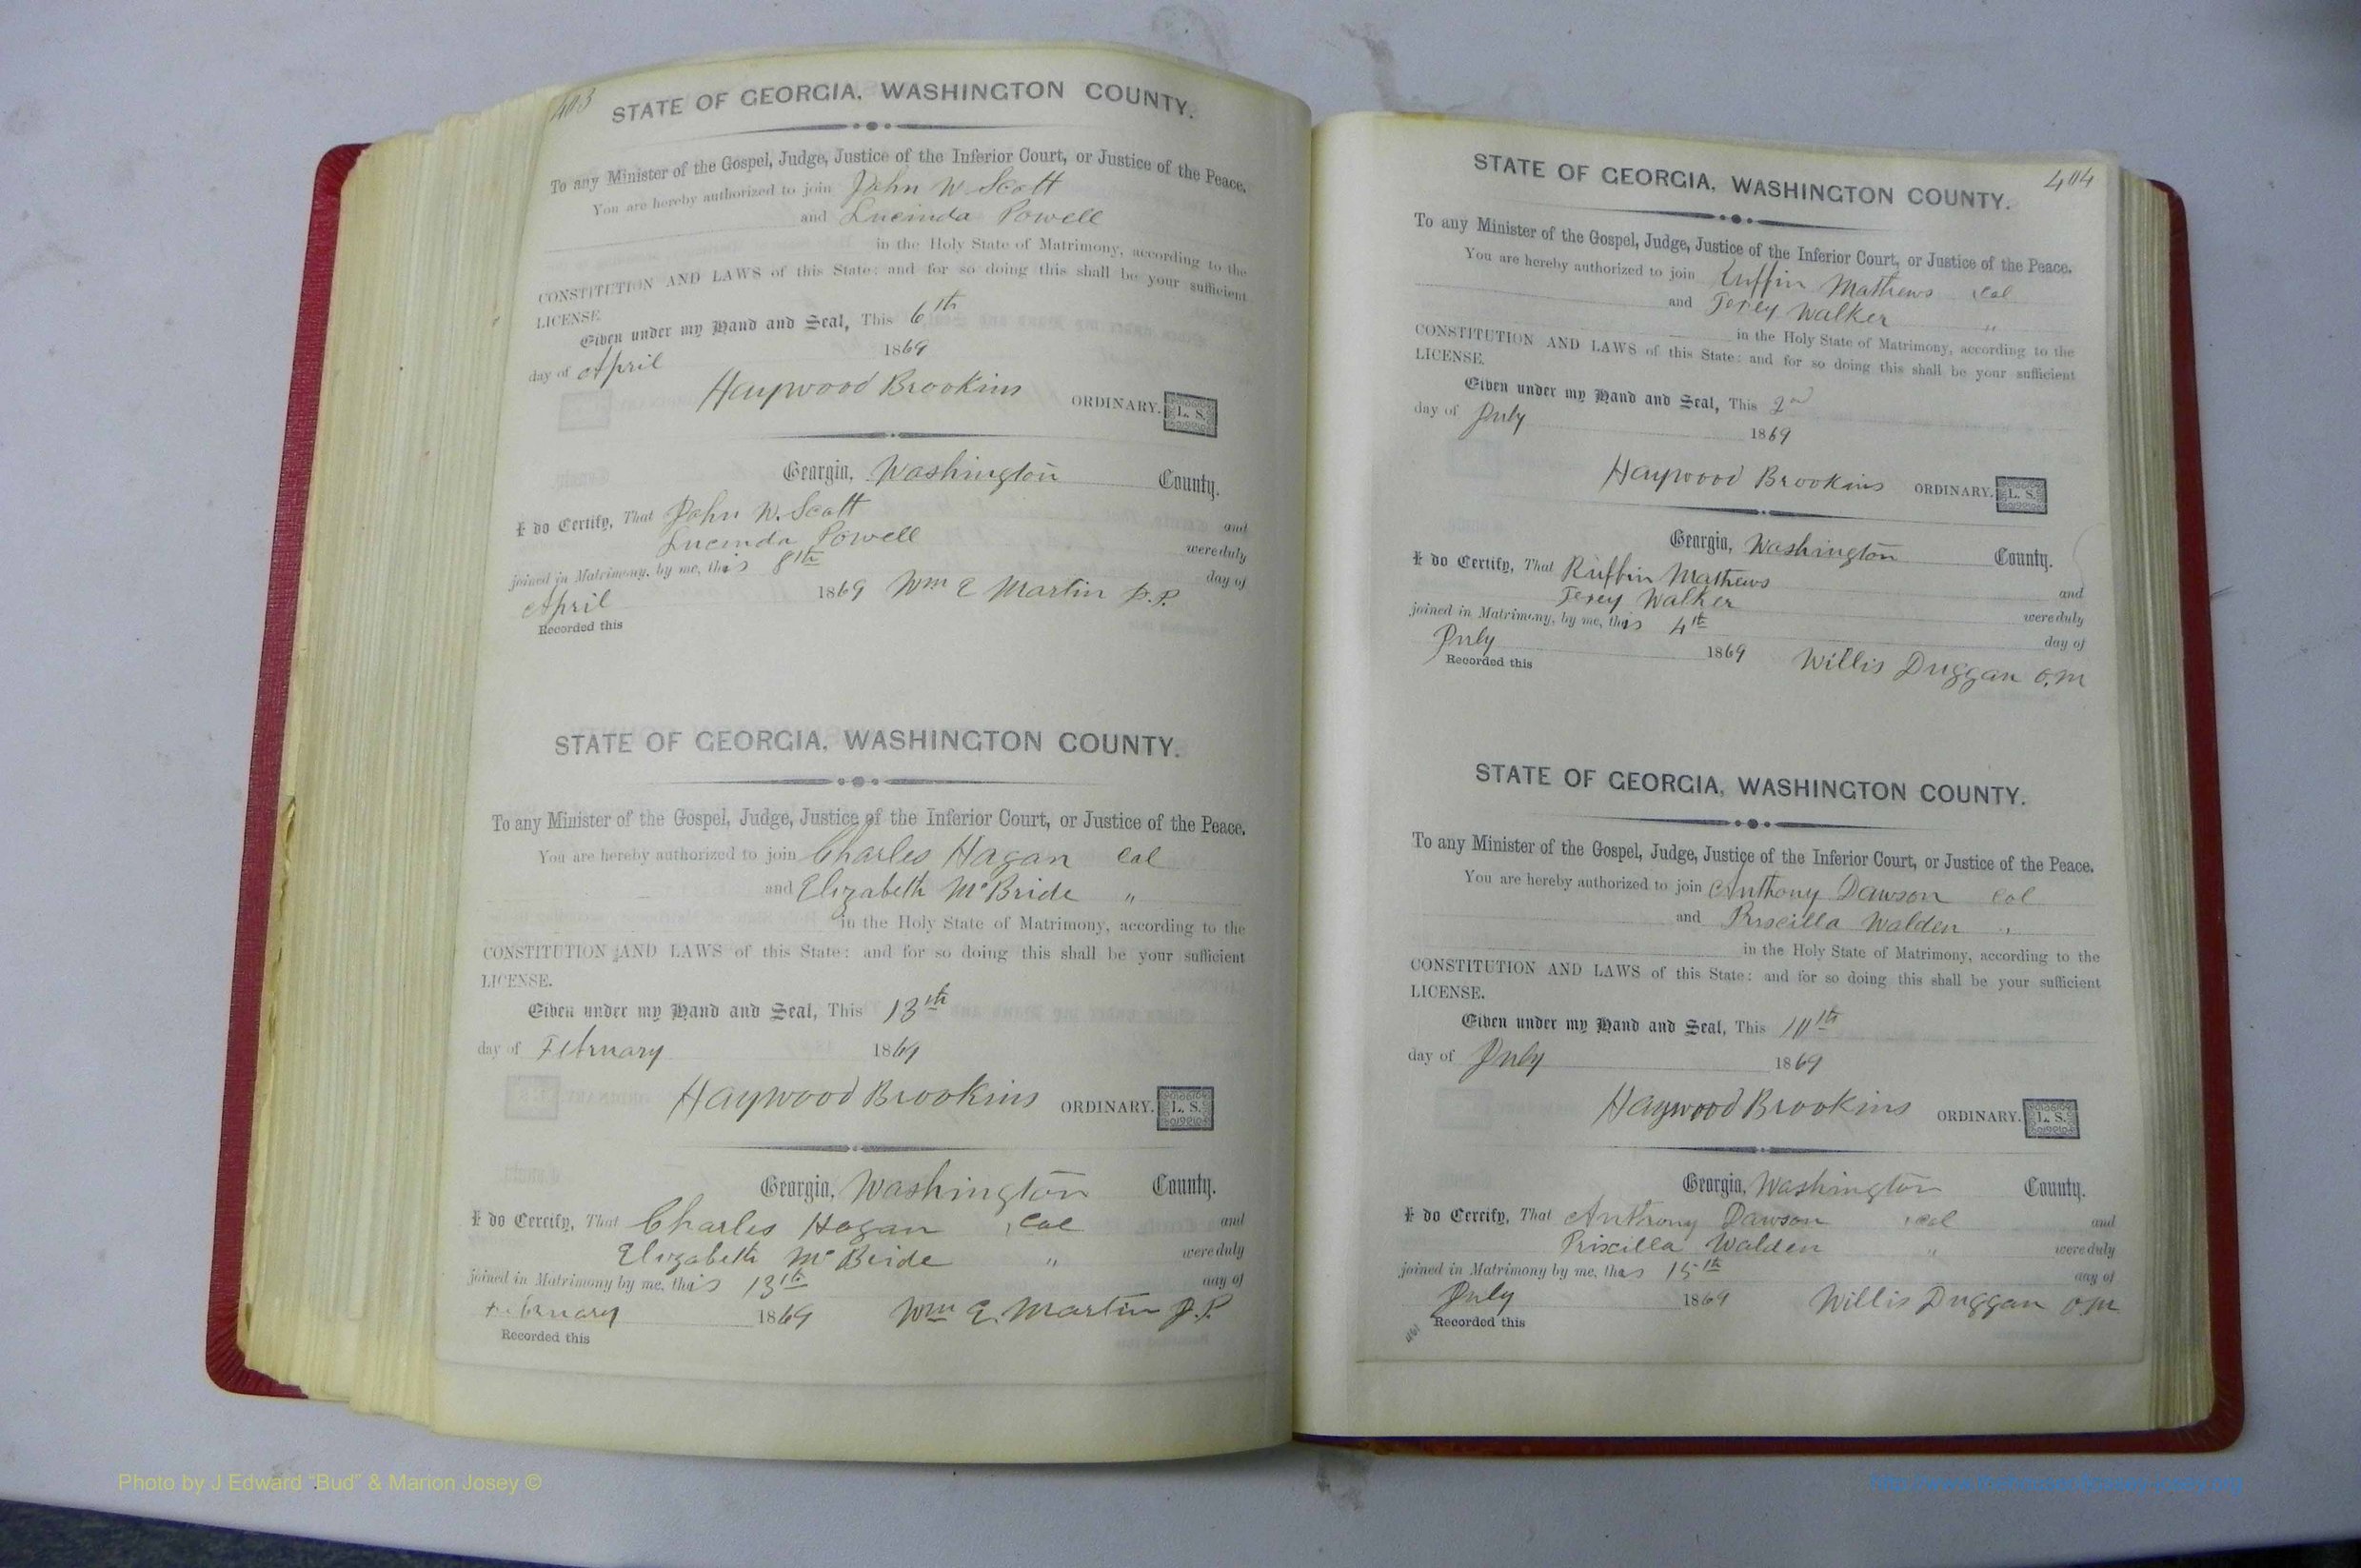 403
STATE OF GEORGIA, WASHINGTON COUNTY.
To any Minister of the Gospel, Judge, Justice of the Inferior Court, or Justice of the Peace.
You are hereby authorized to join John W. Scott
and Lucinda Powell
in the Holy State of Matrimony, according to the
CONSTITUTION AND LAWS of this State: and for so doing this shall be your sufficient
LICENSE.
Given under my Hand and Seal, This 6th
day of April 1869
Haywood Brookins ORDINARY. L. S.
Georgia, Washington County.
I do Certify, That John W. Scott and
Lucinda Powell were duly
joined in Matrimony, by me, this 8th day of
April 1869 Wm E Martin J.P.
Recorded this
STATE OF GEORGIA, WASHINGTON COUNTY.
To any Minister of the Gospel, Judge, Justice of the Inferior Court, or Justice of the Peace.
You are hereby authorized to join Charles Hagan Col
and Elizabeth McBride "
in the Holy State of Matrimony, according to the
CONSTITUTION AND LAWS of this State: and for so doing this shall be your sufficient
LICENSE.
Given under my Hand and Seal, This 13th
day of February 1869
Haywood Brookins ORDINARY. L. S.
Georgia, Washington County.
I do Cercify, That Charles Hagan , Col and
Elizabeth McBride " were duly
joined in Matrimony by me, this 13th day of
February 1869 Wm E. Martin J.P.
Recorded this
404
STATE OF GEORGIA, WASHINGTON COUNTY.
To any Minister of the Gospel, Judge, Justice of the Inferior Court, or Justice of the Peace.
You are hereby authorized to join Ruffin Mathews Col
and Walker "
in the Holy State of Matrimony, according to the
CONSTITUTION AND LAWS of this State: and for so doing this shall be your sufficient
LICENSE.
Given under my Hand and Seal, This 2nd
day of July 1869
Haywood Brookins ORDINARY. L. S.
Georgia, Washington County.
I do Certify, That Ruffin Mathews and
Walker were duly
joined in Matrimony, by me, this 4th day of
July 1869 Willis Duggan O.M
Recorded this
STATE OF GEORGIA, WASHINGTON COUNTY.
To any Minister of the Gospel, Judge, Justice of the Inferior Court, or Justice of the Peace.
You are hereby authorized to join Anthony Dawson Col
and Priscilla Walden "
in the Holy State of Matrimony, according to the
CONSTITUTION AND LAWS of this State: and for so doing this shall be your sufficient
LICENSE.
Given under my Hand and Seal, This 10th
day of July 1869
Haywood Brookins ORDINARY. L. S.
Georgia, Washington County.
I do Cercify, That Anthony Dawson , Col and
Priscilla Walden " were duly
joined in Matrimony by me, this 15th day of
July 1869 Willis Duggan O.M
Recorded this
Photo by J Edward "Bud" & Marion Josey ©